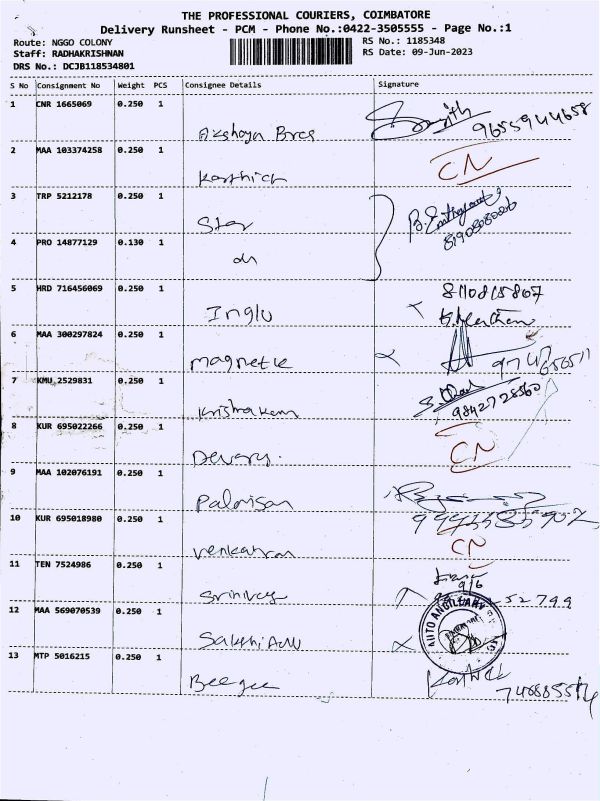 THE PROFESSIONAL COURIERS, COIMBATORE
Delivery Runsheet - PCM - Phone No.:0422-3505555 - Page No.:1
Route: NGGO COLONY RS No.: 1185348
Staff: RADHAKRISHNAN RS Date: 09-Jun-2023
DRS No.: DCJB118534801
S No Consignment No Weight PCS Consignee Details Signature
1 CNR 1665069 0.250 1
Akshaya Bros 9655944658
2 MAA 103374258 0.250 1 CN
Karthick
3 TRP 5212178 0.250 1
Star 8190808026
4 PRO 14877129 0.130 1
do
5 HRD 716456069 0.250 1 8110815807
Inglu
6 MAA 300297824 0.250 1
magnetic
7 KMU 2529831 0.250 1
9842728560
8 KUR 695022266 0.250 1 CN
9 MAA 102076191 0.250 1
Palanisan
10 KUR 695018980 0.250 1 CN
11 TEN 7524986 0.250 1 9/6
Srinivas 52799
12 MAA 569070539 0.250 1
Sakthi AUTO ANCILLARY
13 MTP 5016215 0.250 1
Beegee